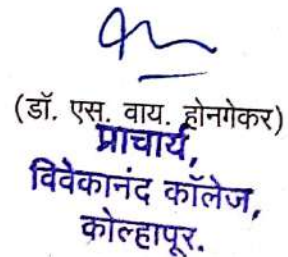 (डॉ. एस. वाय. होनगेकर)
प्राचार्य,
विवेकानंद कॉलेज,
कोल्हापूर.